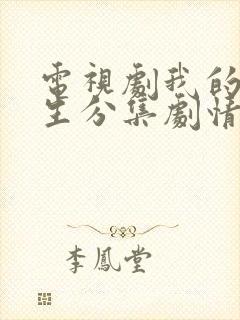 電視劇我的
生分集劇情
李鳳堂